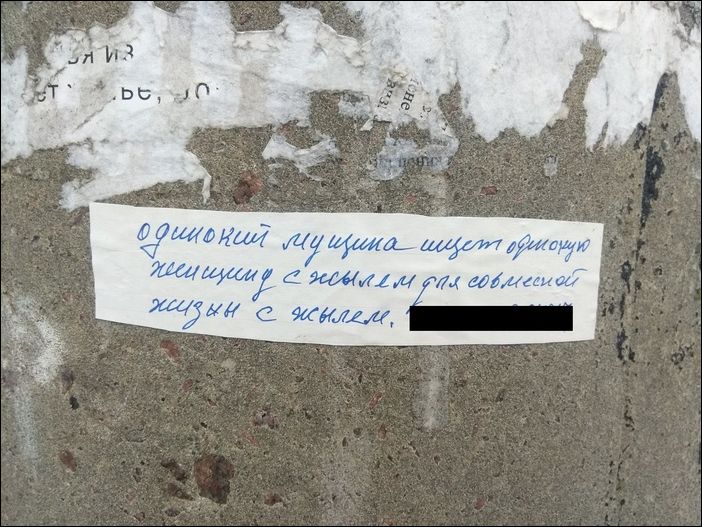 ья из
одинокий мущина ищет одинокую
женщину с жылем для совмесной
жизни с жылем.